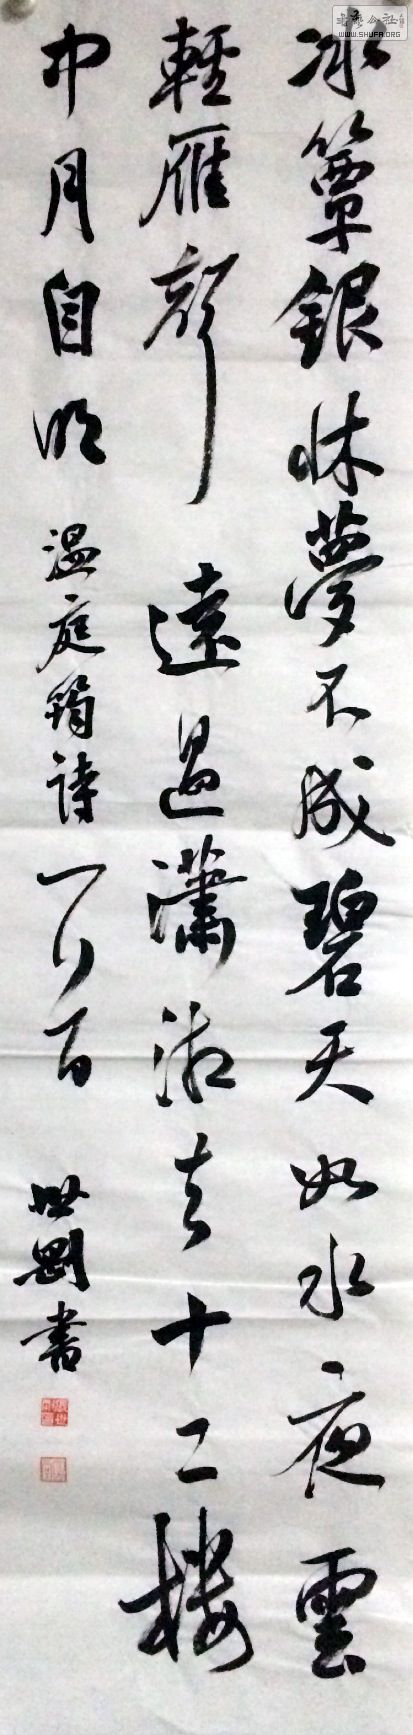 冰簟銀牀夢不成碧天如水夜雲
輕雁聲遠過瀟湘去十二樓
中月自明
溫庭筠詩一首
世剛書
WWW.SHUFA.ORG